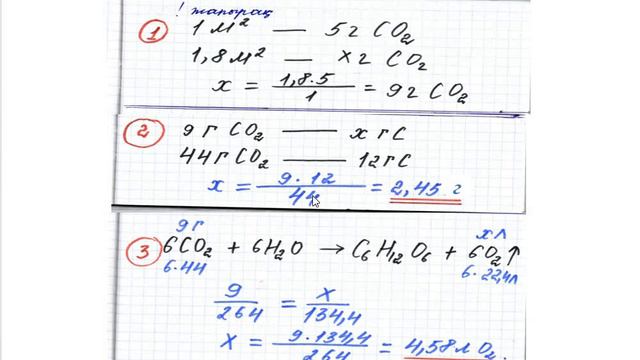 ! жапырақ
1 1 м² — 5 г CO₂
1,8 м² — x г CO₂
x = 1,8·5 / 1 = 9 г CO₂
2 9 г CO₂ — x г C
44 г CO₂ — 12 г C
x = 9·12 / 44 = 2,45 г
9 г x л
3 6CO₂ + 6H₂O → C₆H₁₂O₆ + 6O₂↑
6·44 6·22,4л
9 / 264 = x / 134,4
x = 9·134,4 / 264 = 4,58 л O₂